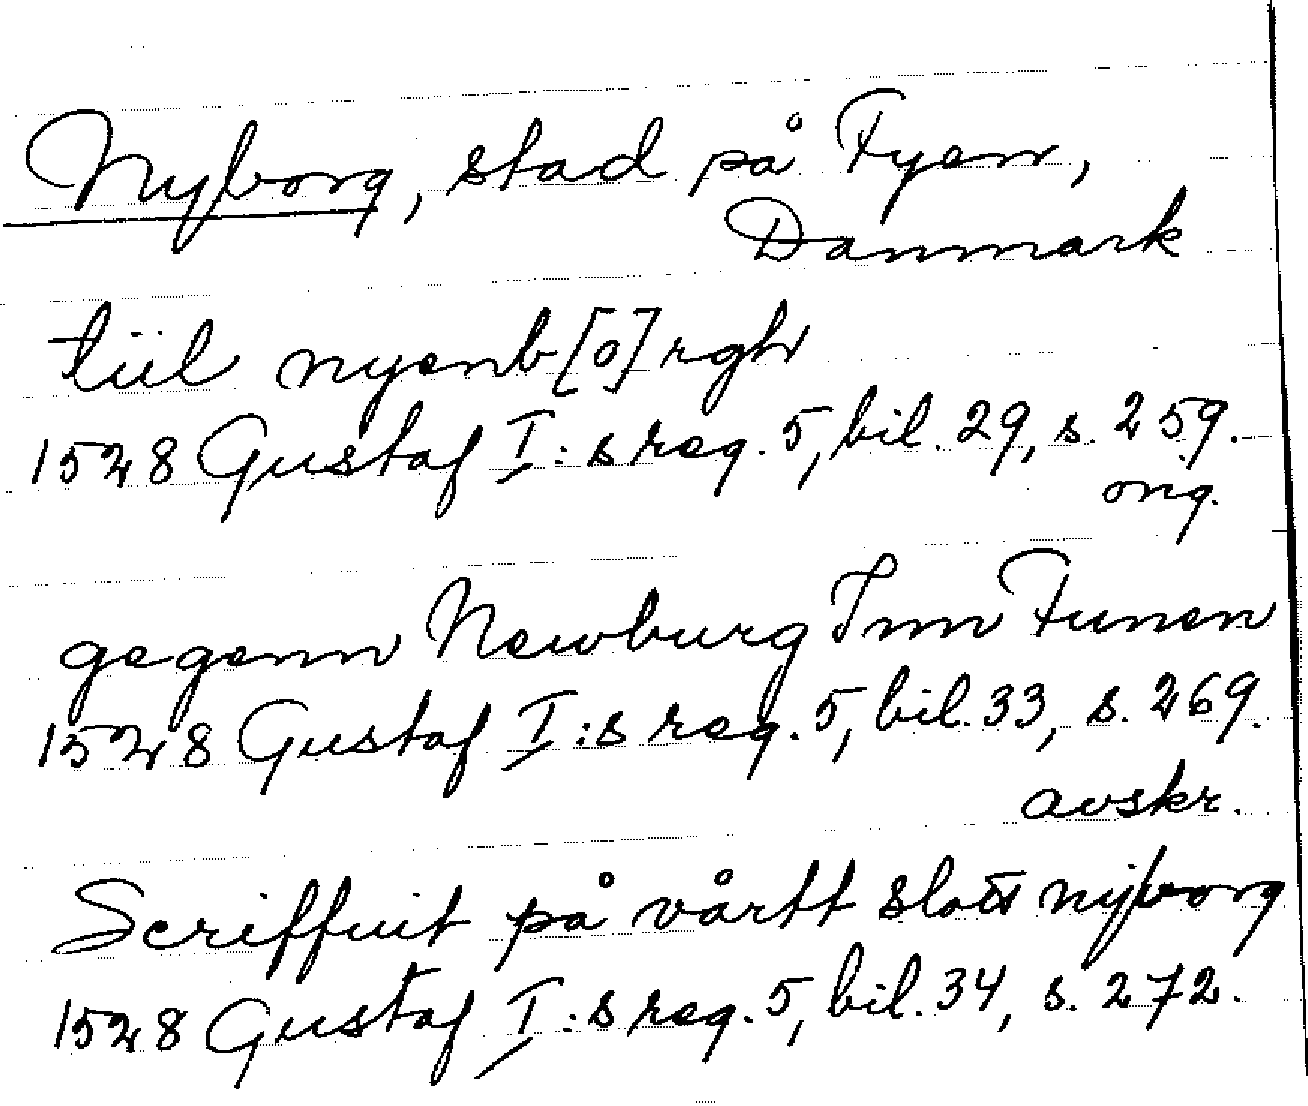 Nyborg, stad på Fyen,
Danmark
tiil nyenb[o]rgh
1528 Gustaf I:s reg. 5, bil. 29, s. 259.
orig.
gegenn Newburg Inn Funen
1528 Gustaf I:s reg. 5, bil. 33, s. 269.
avskr.
Scriffuit på vårtt slott nyborg
1528 Gustaf I:s reg. 5, bil. 34, s. 272.